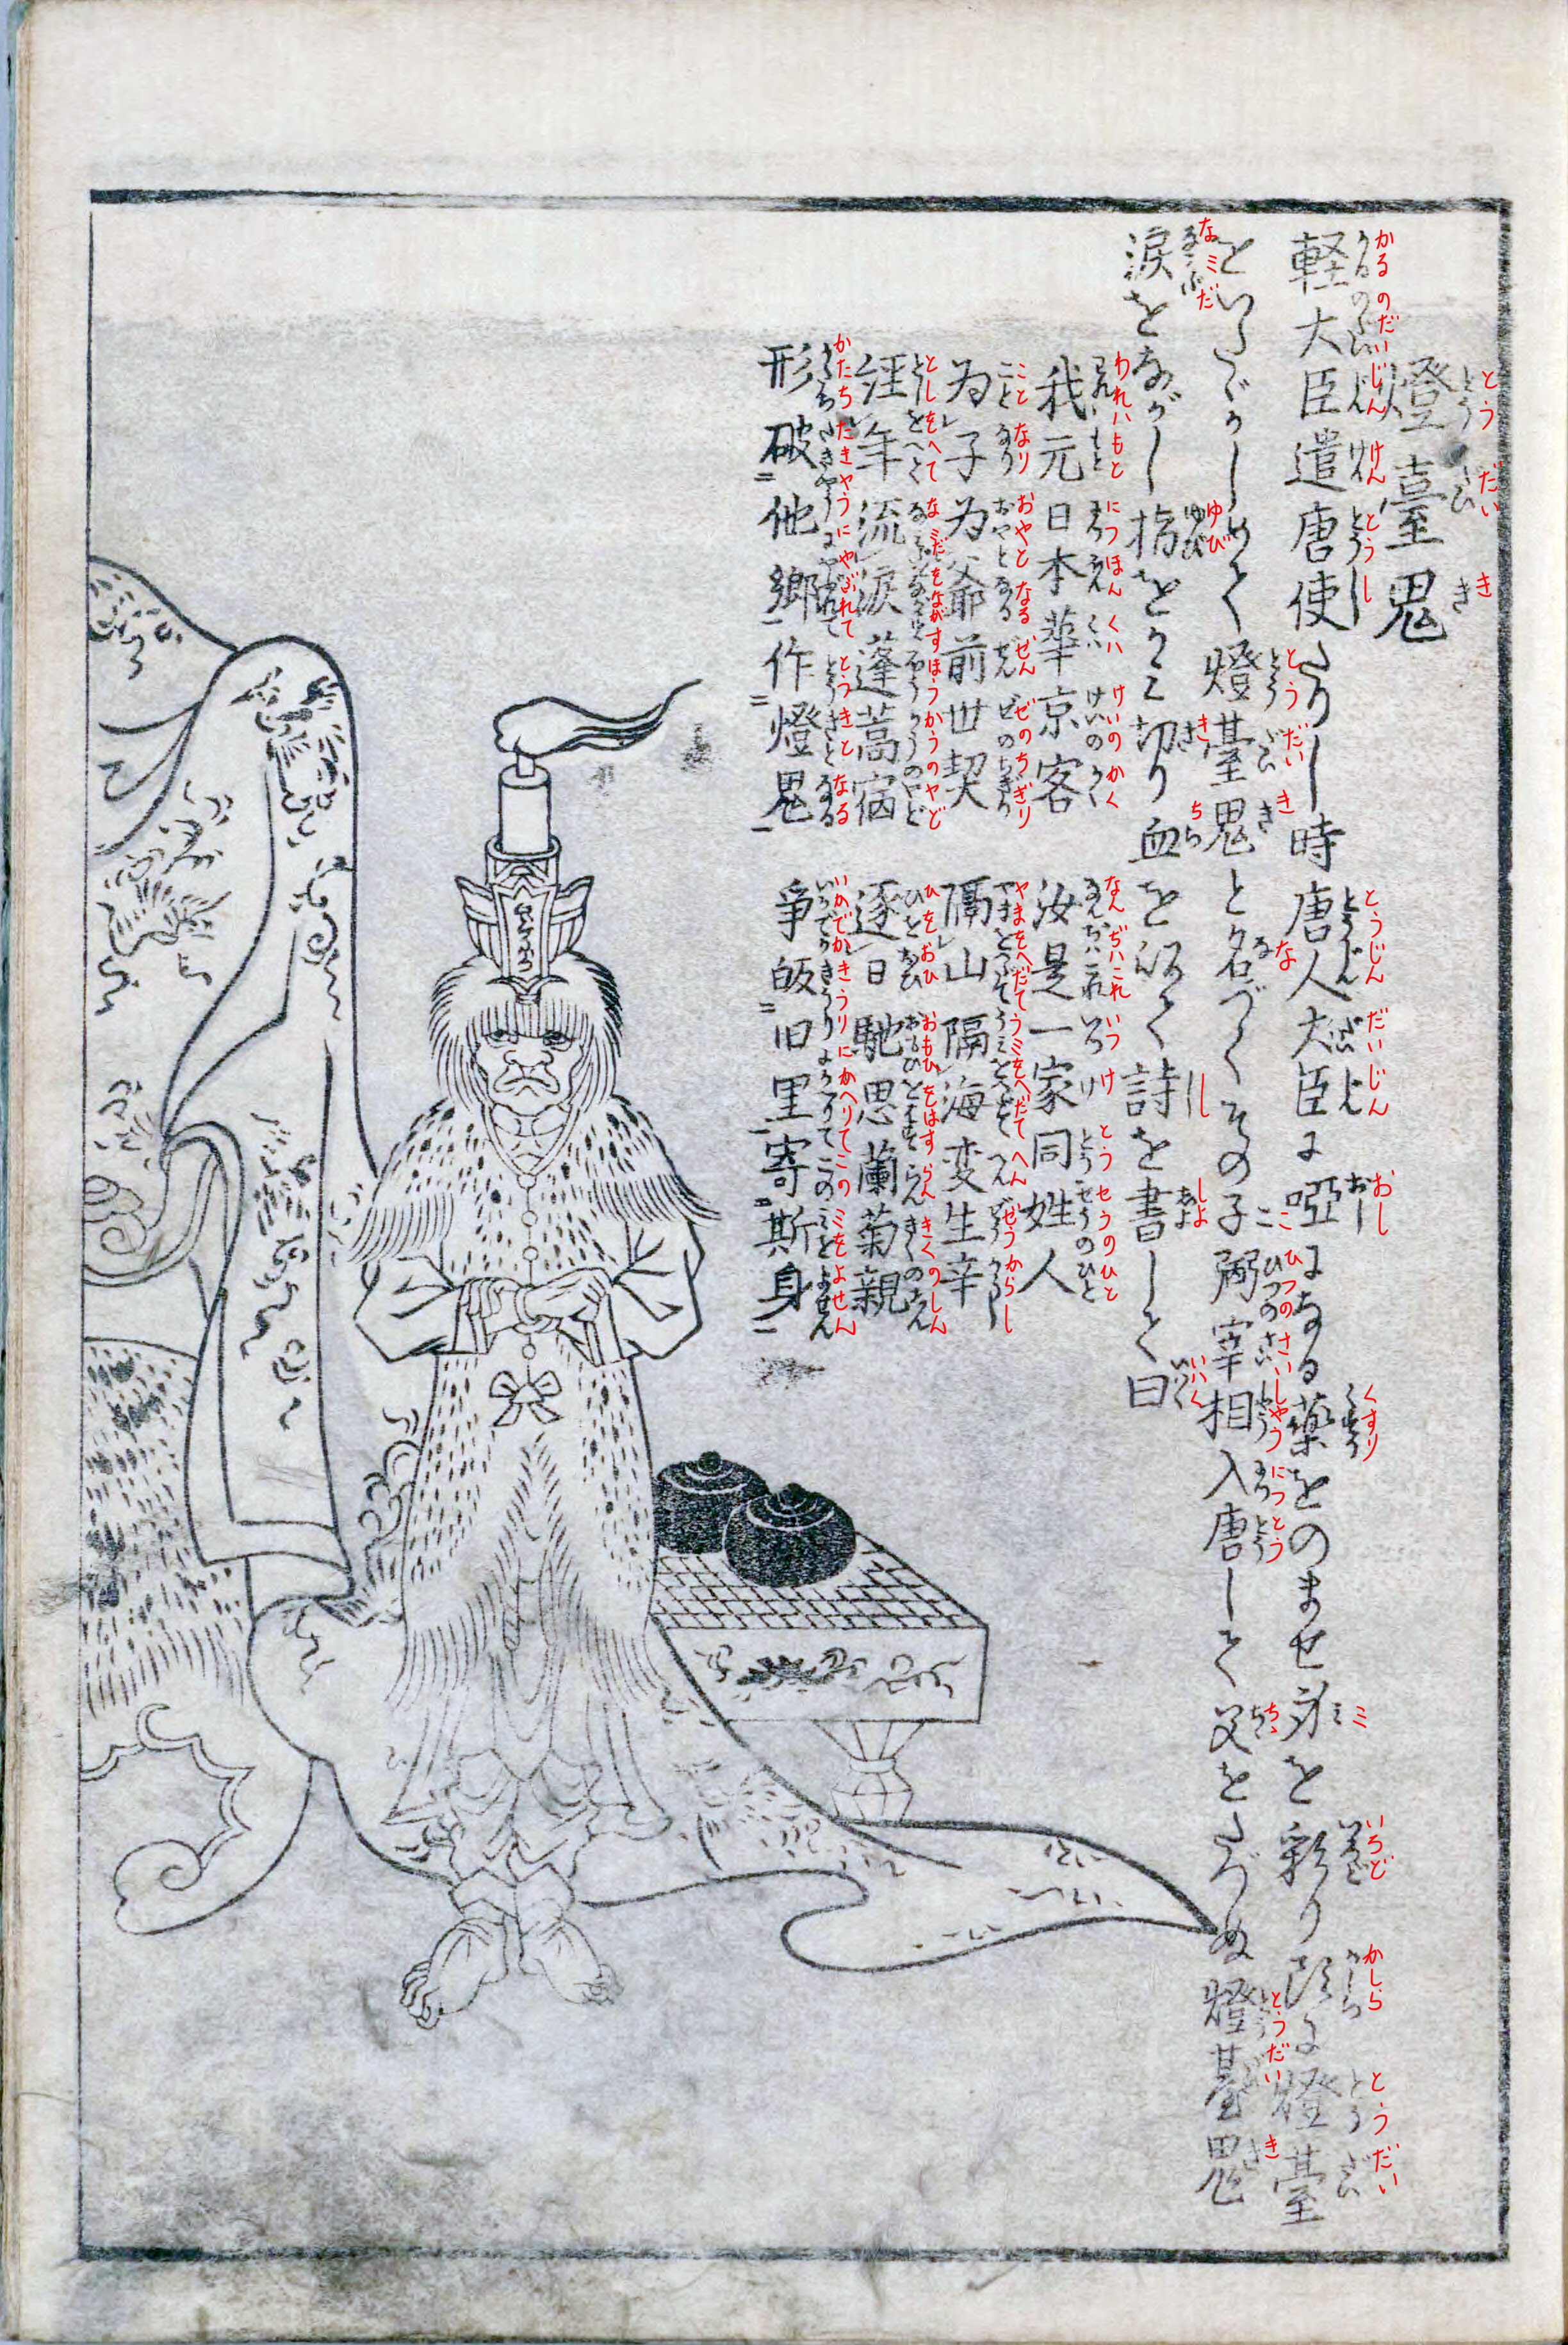 とう だい き
燈臺鬼
かる のだいじん けん とうし とうじん だいじん おし くすり ミ いろど かしら とう だい
軽大臣遣唐使たりし時唐人大臣に唖になる薬をのませ身を彩り頭に燈臺
とう だい き な こ ひつのさいしやう につとう ちゝ とうだい き
をいたゞかしめて燈臺鬼と名づくその子弼宰相入唐して父をたづぬ燈臺鬼
なミだ ゆび き ちら し しよ いハく
涙をながし指をかミ切り血を以て詩を書して曰
われハもと につほん くハ けいの かく なんぢハこれ いつ け とう せうのひと
我元日本華京客 汝是一家同姓人
こと なり おやと なる ぜん ぜのちぎり やまをへだてうミをへだて へん ぜうからし
為子為爺前世契 隔山隔海変生辛
としをへて なミだをながすほうかうのやど ひをおひ おもひをはす らん きくのしん
経年流涙蓬蒿宿 逐日馳思蘭菊親
かたち たきやうにやぶれて とうきと なる いかでか きうりにかへりてこの ミをよせん
形破他郷作燈鬼 争皈旧里寄斯身